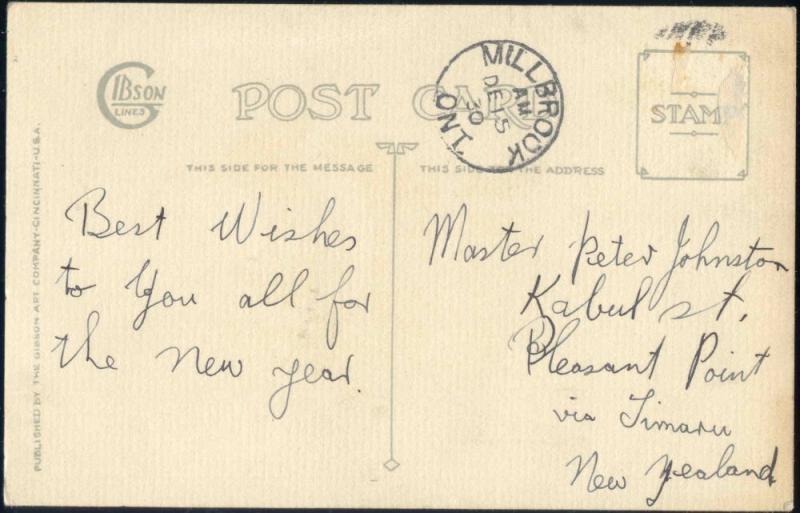 GIBSON
LINES
POST CARD
MILLBROOK
AM
DE 5
30
ONT
STAMP
THIS SIDE FOR THE MESSAGE
THIS SIDE FOR THE ADDRESS
PUBLISHED BY THE GIBSON ART COMPANY-CINCINNATI-U.S.A.
Best Wishes
to you all for
the New year.
Master Peter Johnston
Kabul st,
Pleasant Point
via Timaru
New Zealand.